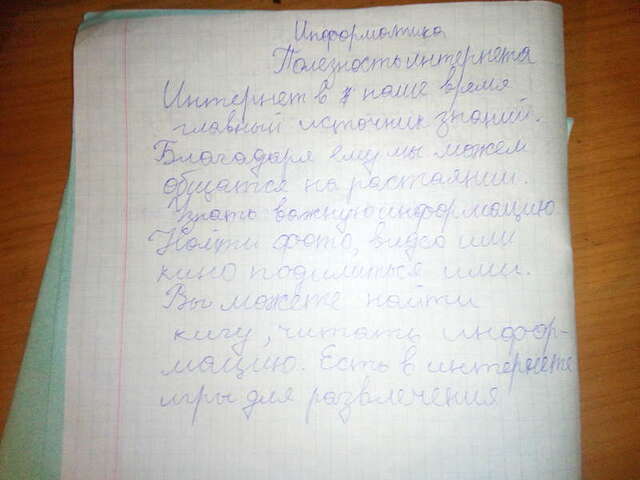 Информатика
Полезность интернета
Интернет в наше время
главный источник знаний.
Благодаря ему мы можем
общатся на растаянии.
Знать важную информацию
Найти фото, видео или
кино поделиться ими.
Вы можете найти
кигу, читать инфор-
мацию. Есть в интернете
игры для развлечения